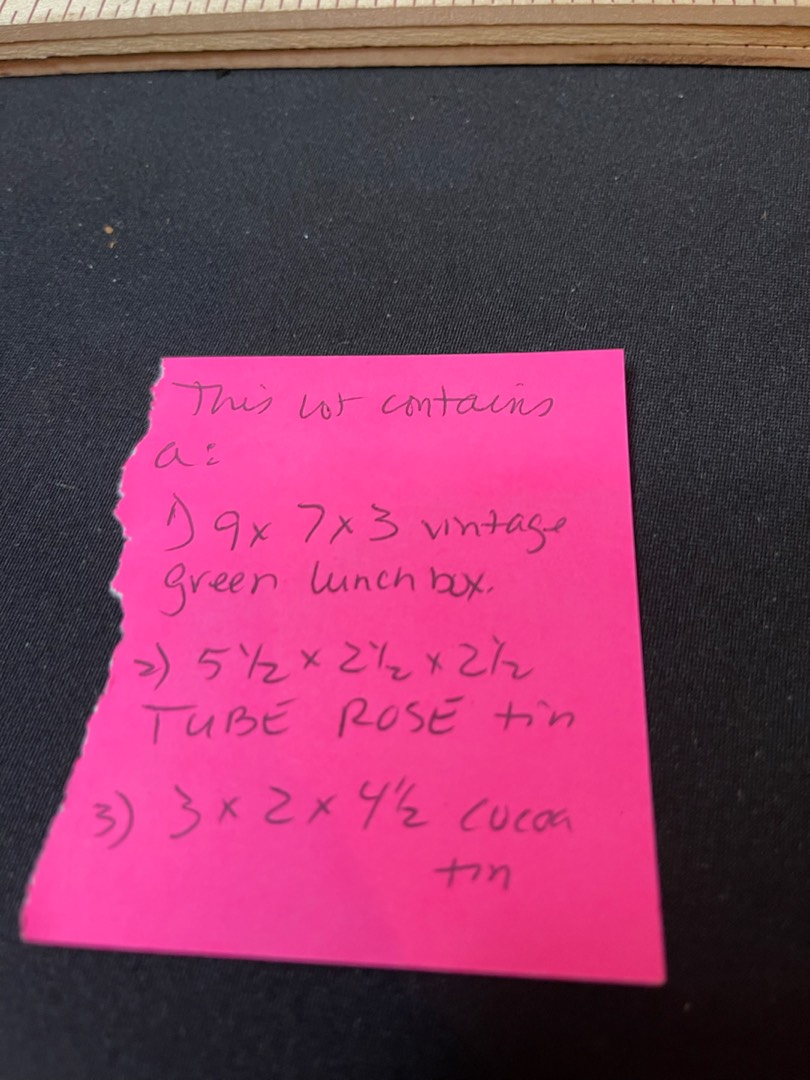 This lot contains
a:
1) 9 x 7 x 3 vintage
green lunch box.
2) 5 1/2 x 2 1/2 x 2 1/2
TUBE ROSE tin
3) 3 x 2 x 4 1/2 cocoa
tin